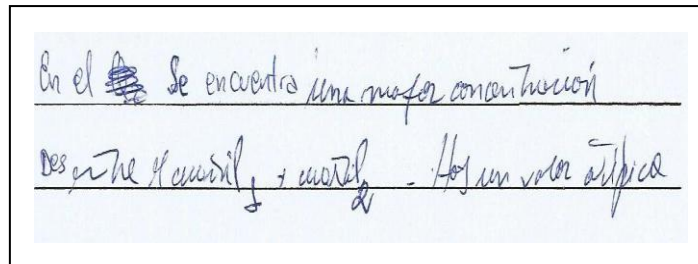 En el se encuentra una mayor concentración
Des entre el cuartil 1 y cuartil 2 - Hay un valor atípico